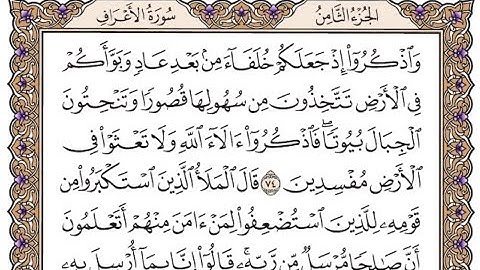 الجُزءُ الثَّامِنُ سُورَةُ الأَعْرَافِ
وَٱذْكُرُوٓا۟ إِذْ جَعَلَكُمْ خُلَفَآءَ مِنۢ بَعْدِ عَادٍ وَبَوَّأَكُمْ
فِى ٱلْأَرْضِ تَتَّخِذُونَ مِن سُهُولِهَا قُصُورًا وَتَنْحِتُونَ
ٱلْجِبَالَ بُيُوتًا ۖ فَٱذْكُرُوٓا۟ ءَالَآءَ ٱللَّهِ وَلَا تَعْثَوْا۟ فِى
ٱلْأَرْضِ مُفْسِدِينَ ٧٤ قَالَ ٱلْمَلَأُ ٱلَّذِينَ ٱسْتَكْبَرُوا۟ مِن
قَوْمِهِۦ لِلَّذِينَ ٱسْتُضْعِفُوا۟ لِمَنْ ءَامَنَ مِنْهُمْ أَتَعْلَمُونَ
أَنَّ صَٰلِحًا مُّرْسَلٌ مِّن رَّبِّهِۦ ۚ قَالُوٓا۟ إِنَّا بِمَآ أُرْسِلَ بِهِۦ